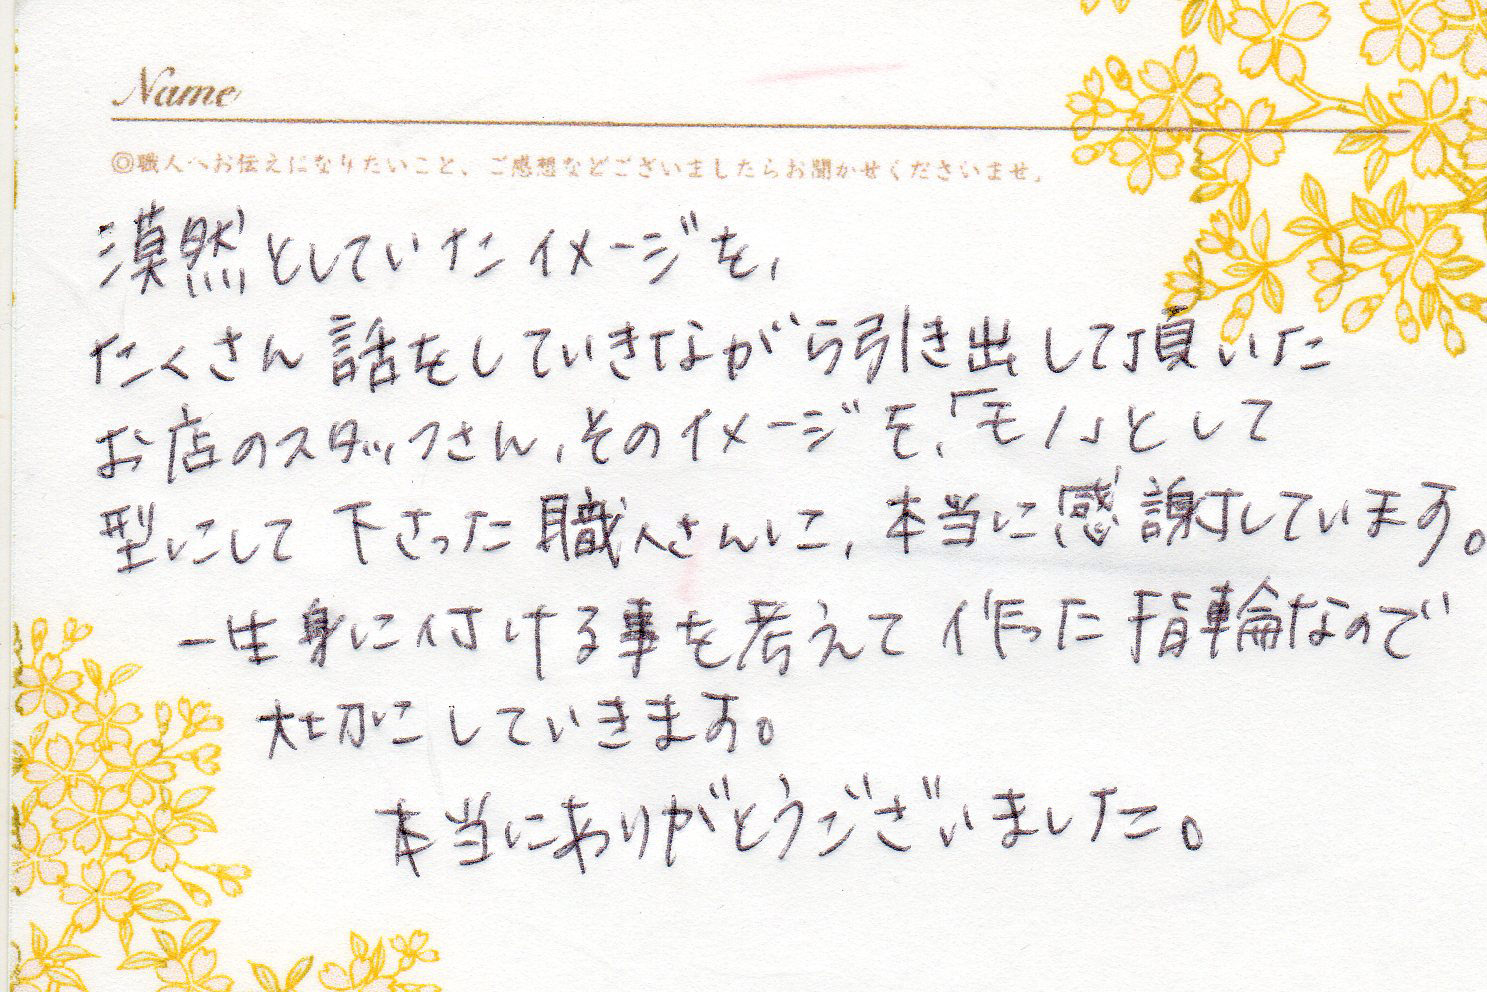 Name
◎職人へお伝えになりたいこと、ご感想などございましたらお聞かせくださいませ。
漠然としていたイメージを、
たくさん話をしていきながら引き出して頂いた
お店のスタッフさん、そのイメージを、「モノ」として
型にして下さった職人さんに、本当に感謝しています。
一生身に付ける事を考えて作った指輪なので
大切にしていきます。
本当にありがとうございました。